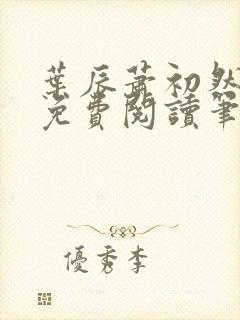 葉辰蕭初然
免費閱讀筆
優秀李